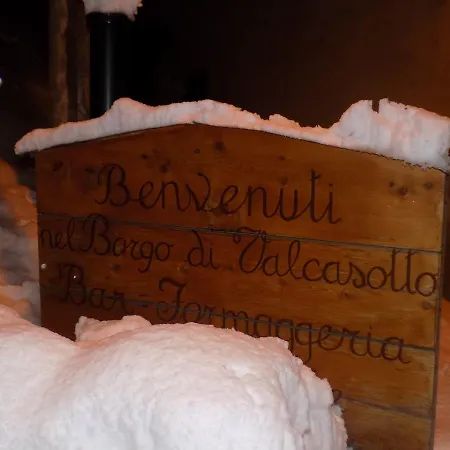 Benvenuti
nel Borgo di Valcasotto
Bar - Formaggeria